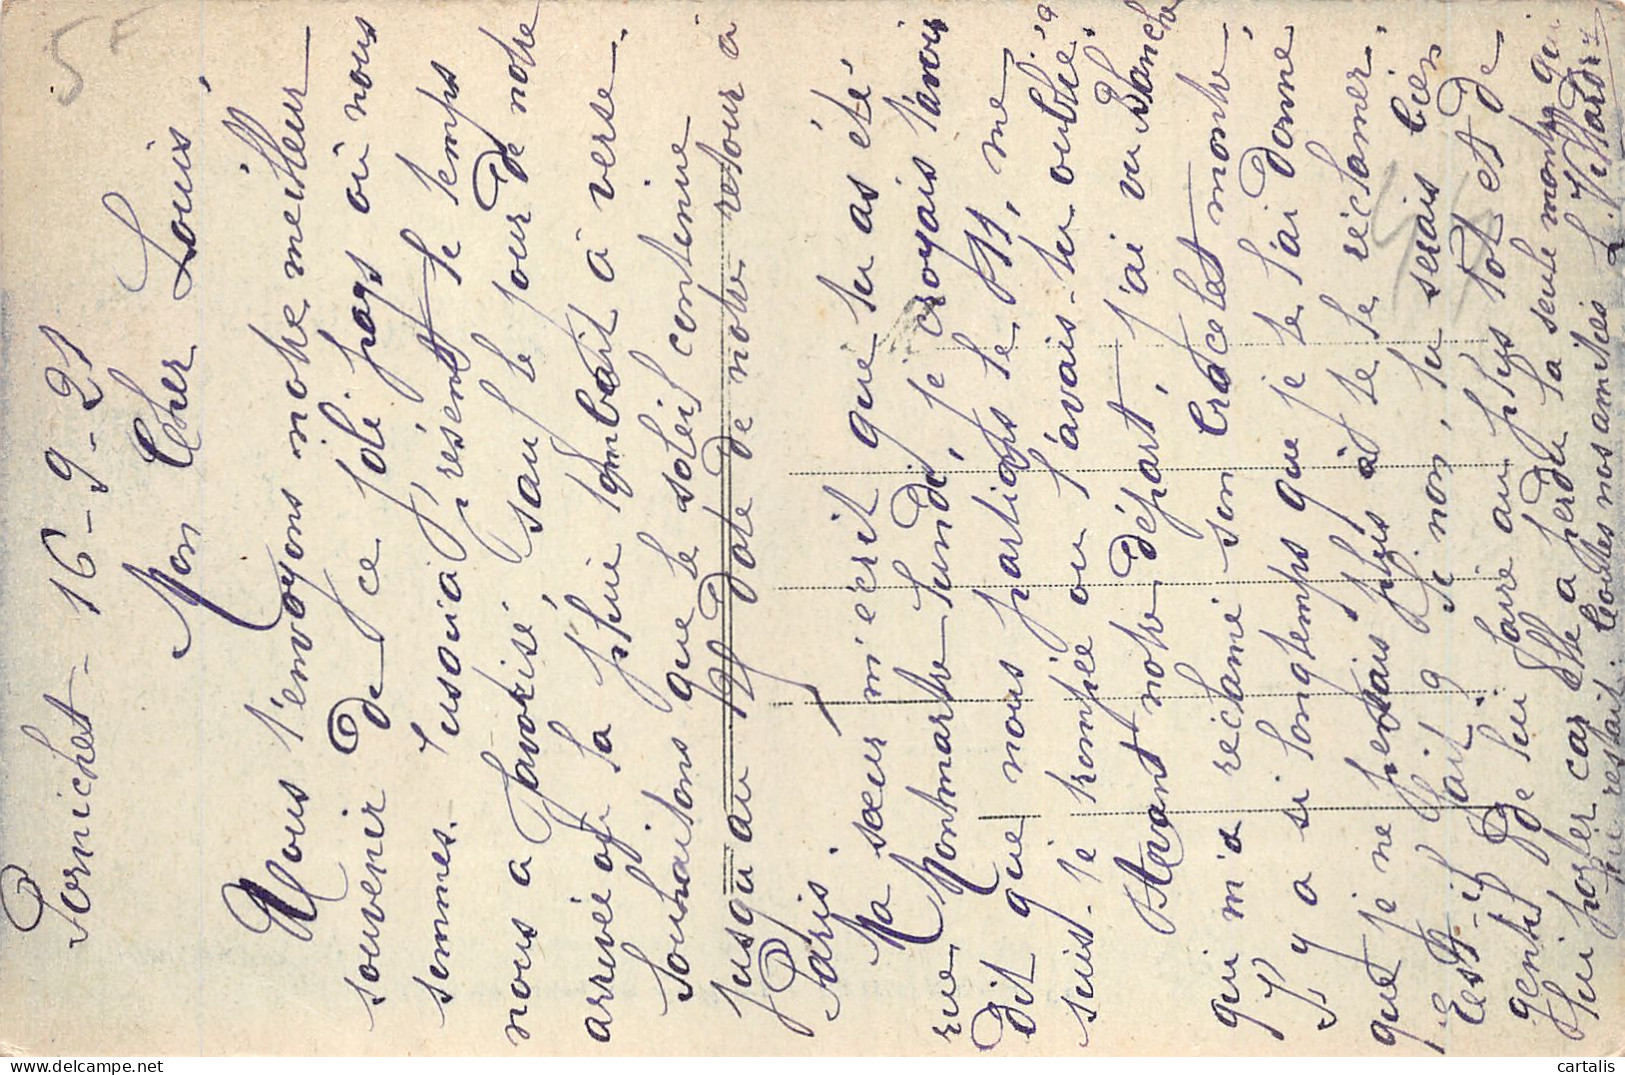 5 F
Pornichet - 16-9-21
Mon Cher Louis
Nous t'envoyons notre meilleur
souvenir de ce joli pays où nous
sommes. Jusqu'à présent le temps
nous a favorisé, sauf le jour de notre
arrivée où la pluie tombait à verse.
Souhaitons que le soleil continue
jusqu'au 19 date de notre retour à
Paris.
Ma sœur m'écrit que tu as été
rue Montmartre lundi, je croyais t'avoir
dit que nous partions le 11, me
suis-je trompée ou l'avais-tu oublié?
Avant notre départ, j'ai vu Blanche
qui m'a réclamé son bracelet montre
Il y a si longtemps que je te l'ai donné
que je ne pensais plus à te le réclamer.
Est-il fait? Si non, tu serais bien
gentil de lui faire au plus tôt et de
lui porter car elle a perdu la seule montre qui
lui restait. Toutes nos amitiés L.
44
cartalis